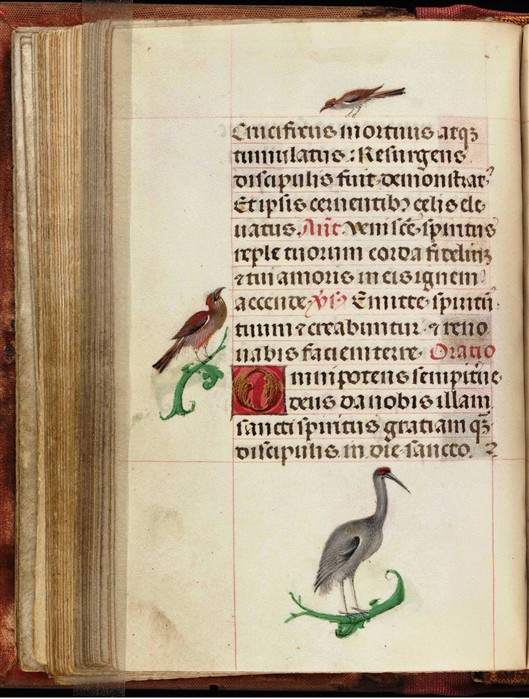 Crucifixus mortuus atqꝫ
tumulatus: Resurgens
discipulis fuit demonstrat᷒
Et ipsis cernentibꝫ celis ele
uatus. Añt. Veni scē spiritus
reple tuorum corda fideliuꝫ
⁊ tui amoris in eis ignem
accende. Vs̃. Emitte spiritū
tuum ⁊ creabuntur. ⁊ reno
uabis faciem terre. Oratio
Omnipotens sempiterne
deus da nobis illam
sancti spiritus gratiam qꝫ
discipulis in die sancto.